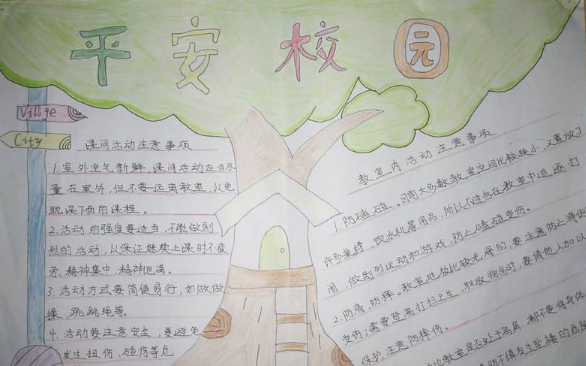 平安校园
Village
City
课间活动注意事项
1.室外空气新鲜,课间活动应当尽
量在室外,但不要远离教室,以免
耽误下面的课程。
2.活动的强度要适当,不做剧
烈的活动,以保证继续上课时不疲
劳,精神集中、精神饱满。
3.活动方式要简便易行,如做做
操、跳跳绳等。
4.活动要注意安全,要避免
发生扭伤、碰伤等危
教室内活动注意事项
1.防磕碰。目前大多数教室空间比较狭小,又置放了
许多桌椅、饮水机等用品,所以不应在教室中追逐、打
闹,做剧烈运动和游戏,防止磕碰受伤。
2.防滑、防摔。教室地板比较光滑的,要注意防止滑倒
受伤;需要登高打扫卫生、取放物品时,要请他人加以
保护,注意防摔伤。
教室是否处于高层,都不要将身体
防不慎发生坠楼的危险